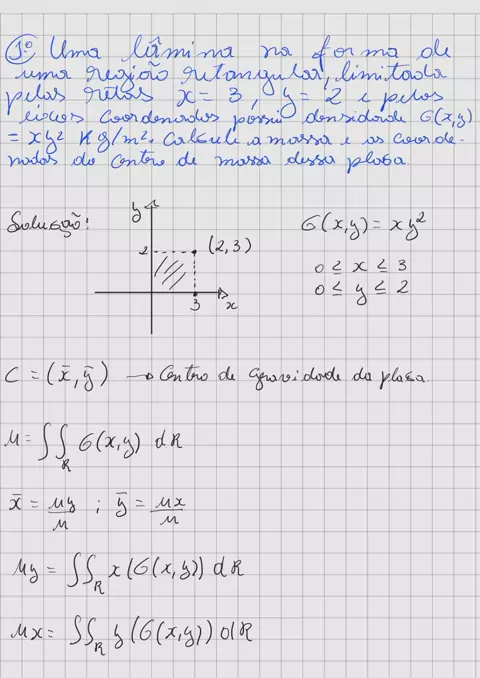 1º Uma lâmina na forma de
uma região retangular, limitada
pelas retas x = 3, y = 2 e pelos
eixos coordenados possui densidade G(x,y)
= xy² Kg/m². Calcule a massa e as coorde-
nadas do centro de massa dessa placa.
Solução:
y
2
(2,3)
3
x
G(x,y) = xy²
0 ≤ x ≤ 3
0 ≤ y ≤ 2
C = (x̄, ȳ) → Centro de gravidade da placa.
M = ∬_R G(x,y) dR
x̄ = My/M ; ȳ = Mx/M
My = ∬_R x(G(x,y)) dR
Mx = ∬_R y(G(x,y)) dR